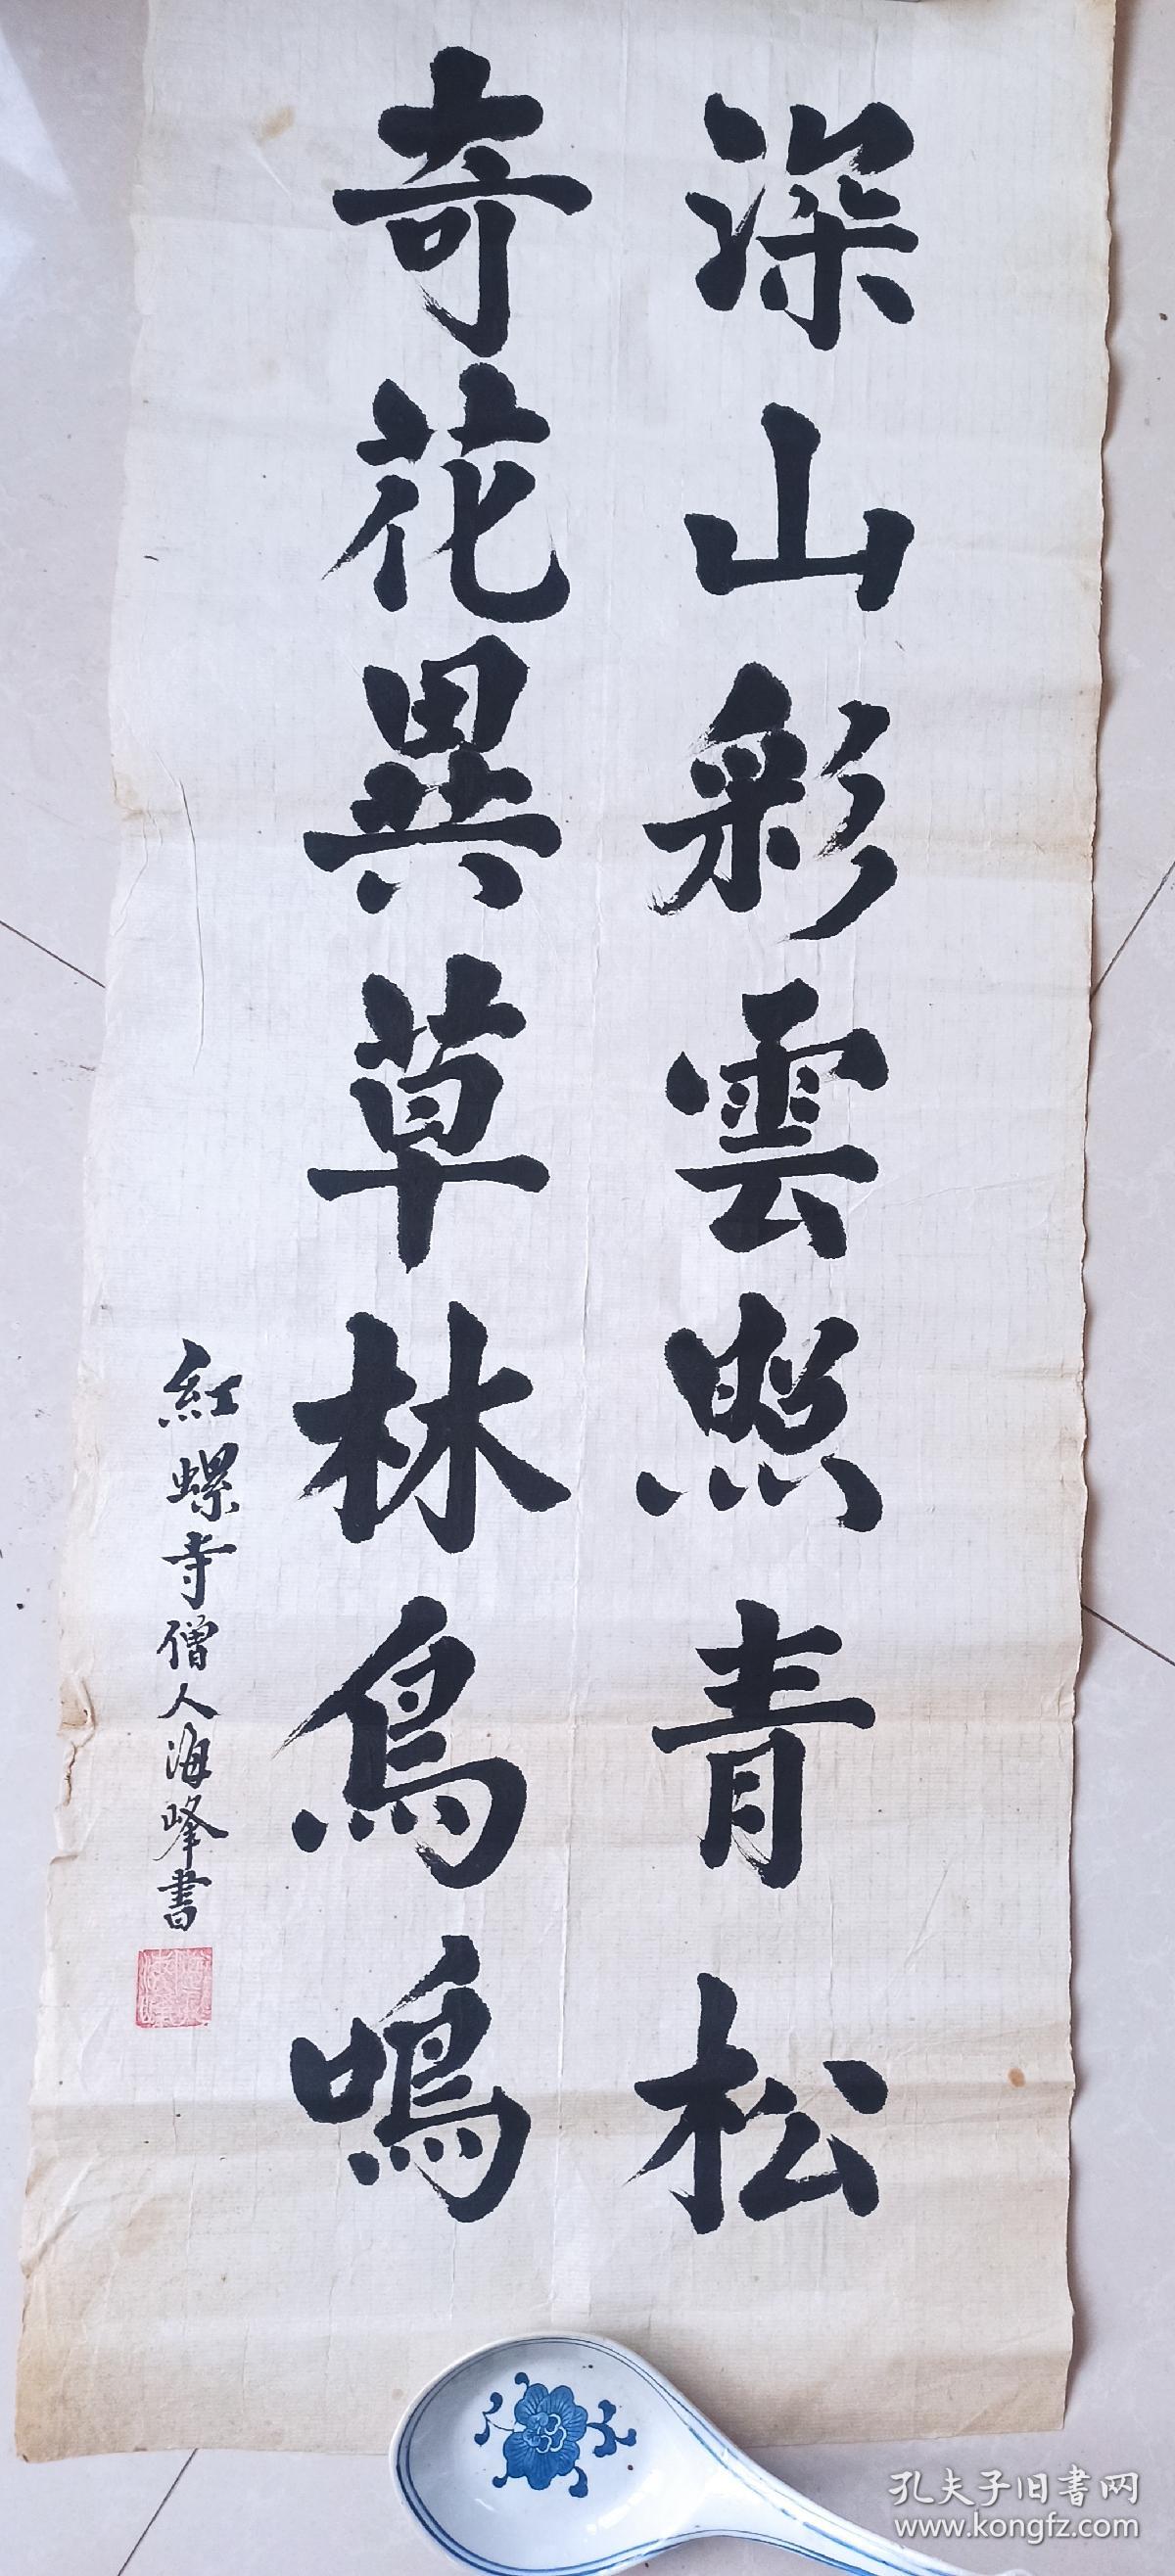 深山彩雲照青松
奇花異草林鳥鳴
紅螺寺僧人海峰書
孔夫子旧书网
www.kongfz.com